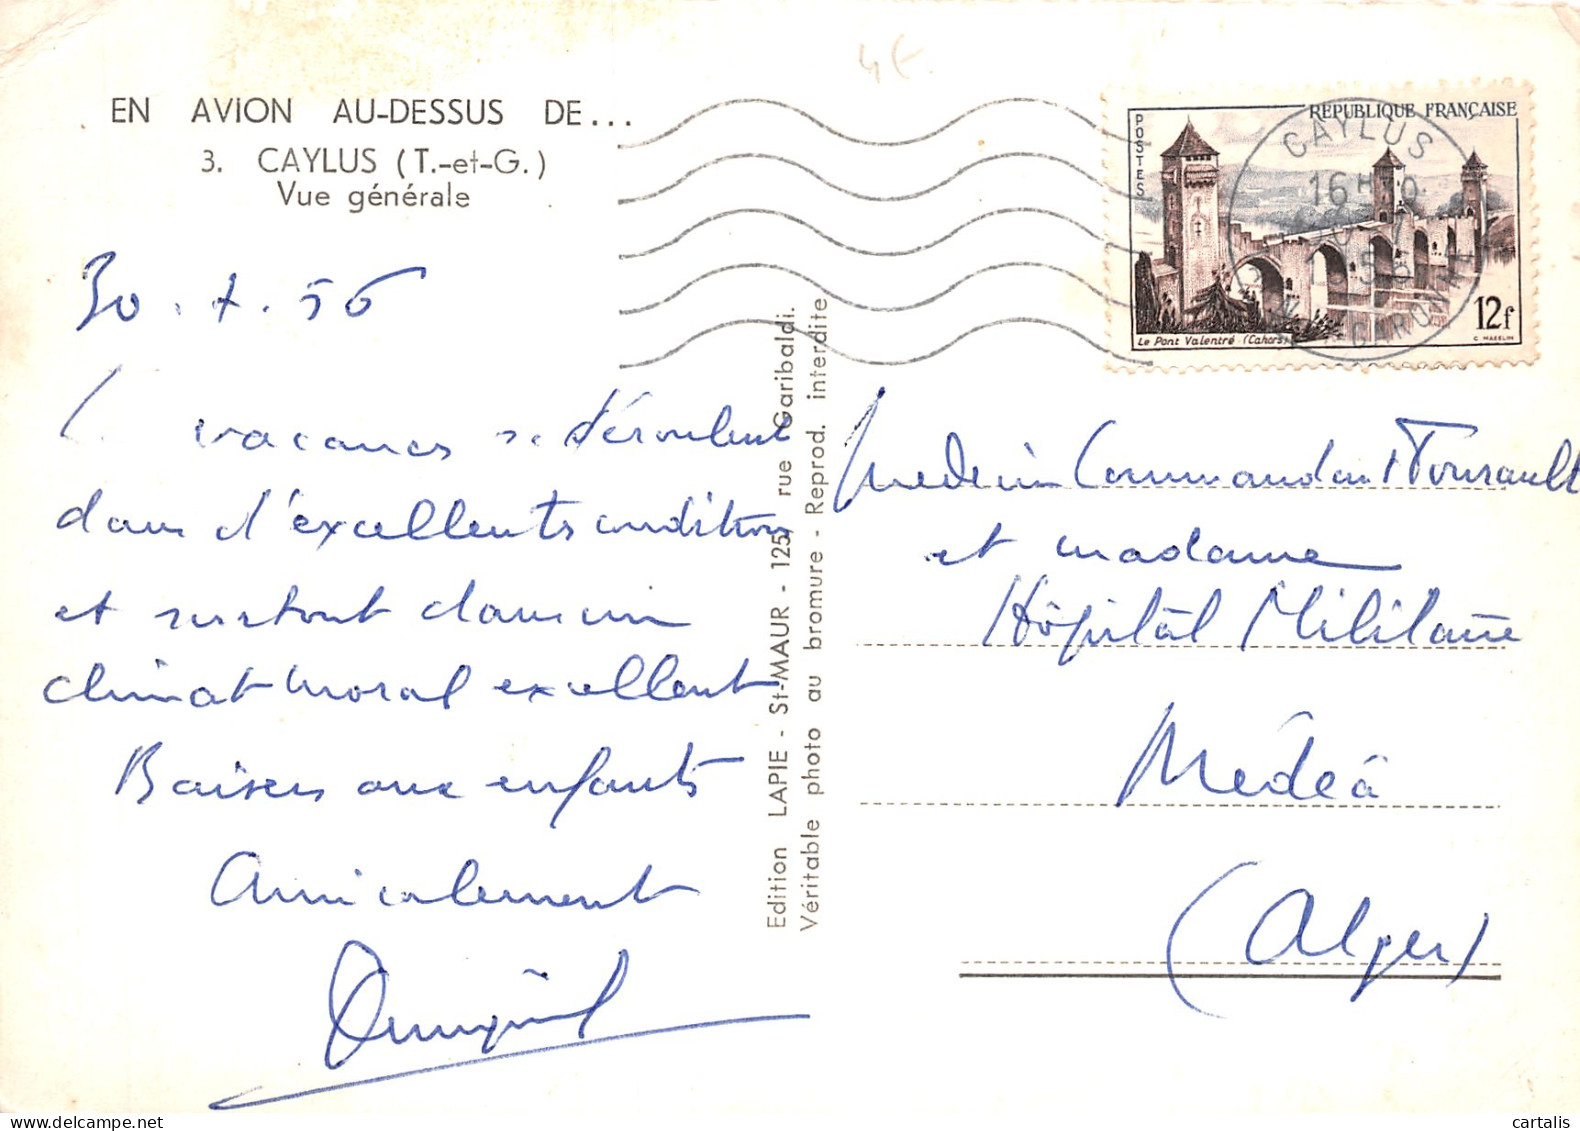 4€
EN AVION AU-DESSUS DE...
3. CAYLUS (T.-et-G.)
Vue générale
30.7.56
vacances se déroulent
dans d'excellents condition
et surtout dans un
climat moral excellent
Baisers aux enfants
Amicalement
Edition LAPIE - St-MAUR - 125, rue Garibaldi.
Véritable photo au bromure - Reprod. interdite
RÉPUBLIQUE FRANÇAISE
POSTES
12f
Le Pont Valentré (Cahors)
C. MAZELIN
CAYLUS
16H
GARONNE
Médecin Commandant Toursault
et madame
Hôpital Militaire
Médéa
(Alger)
cartalis